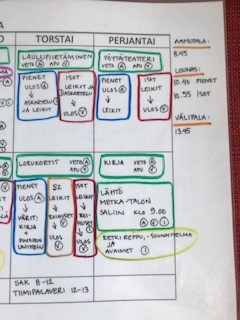 TORSTAI
PERJANTAI
LAULUPIIRTÄMINEN
VETO Ⓐ APU Ⓥ
PÖYTÄTEATTERI
VETO Ⓐ APU Ⓥ
PIENET
ULOS Ⓐ
↓
ASKARTELU
JA LEIKIT
ISOT
LEIKIT JA
ASKARTELU
↓
ULOS Ⓥ
PIENET
ULOS Ⓐ
↓
LEIKIT
ISOT
LEIKIT
↓
ULOS Ⓥ
AAMUPALA:
8.45
LOUNAS:
10.40 PIENET
10.55 ISOT
VÄLIPALA:
13.45
LORUKORTIT
VETO Ⓐ APU Ⓥ
KIRJA
VETO Ⓐ APU Ⓥ
PIENET
ULOS Ⓐ
↓
VÄRIT:
KIRJA
+
LAJITTELU
S2
LEIKIT
↓
ULOS
Ⓥ
ISOT
LEIKIT
↓
ULOS
Ⓥ
LÄHTÖ
METKA-TALON
SALIIN KLO 9.00
Ⓐ Ⓥ Ⓘ
RETKIREPPU, -SUUNNITELMA
JA
AVAIMET Ⓘ
SAK 8-12
TIIMIPALAVERI 12-13